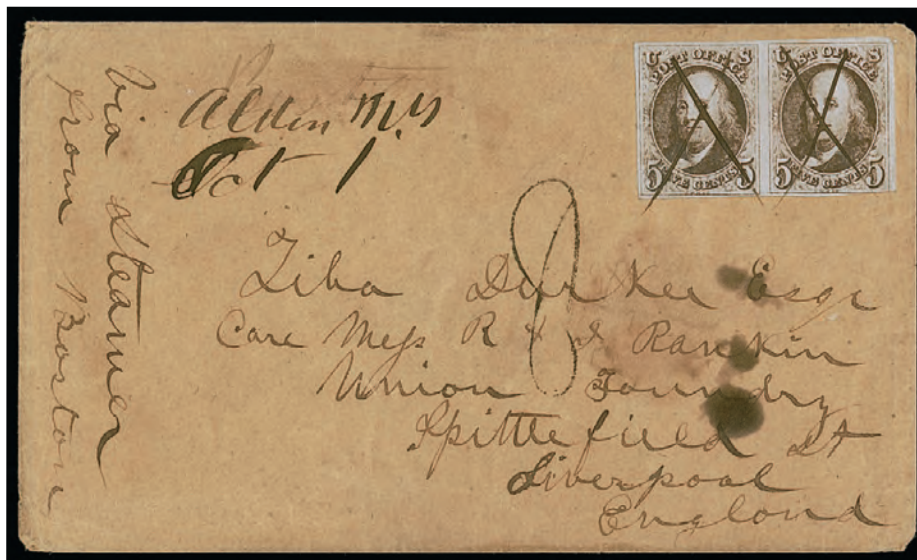 Via Steamer
from Boston
Alden N.Y
Oct 1.
U S
POST OFFICE
5 FIVE CENTS 5
U S
POST OFFICE
5 FIVE CENTS 5
8
Ziba Durkee Esqr
Care Mess R & J Rankin
Union Foundry
Spittlefield St
Liverpool
England